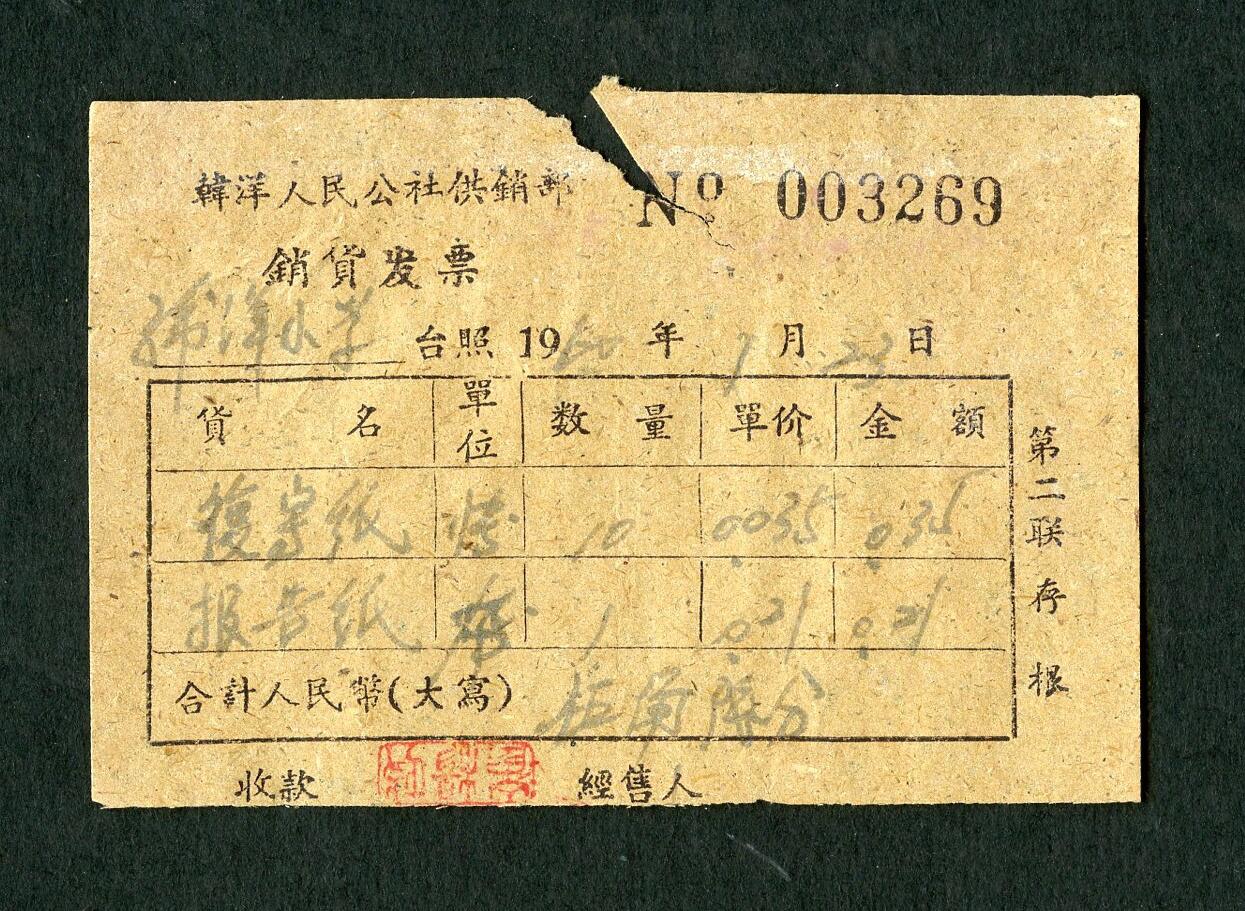 韓洋人民公社供銷部
№ 003269
銷貨发票
洋小学 台照 1960年 7月 23日
貨名 單位 数量 單价 金額
復写纸 张 10 0.035 0.35
报告纸 1 0.21 0.21
合計人民幣(大寫) 伍角陸分
收款 經售人
第二联 存根